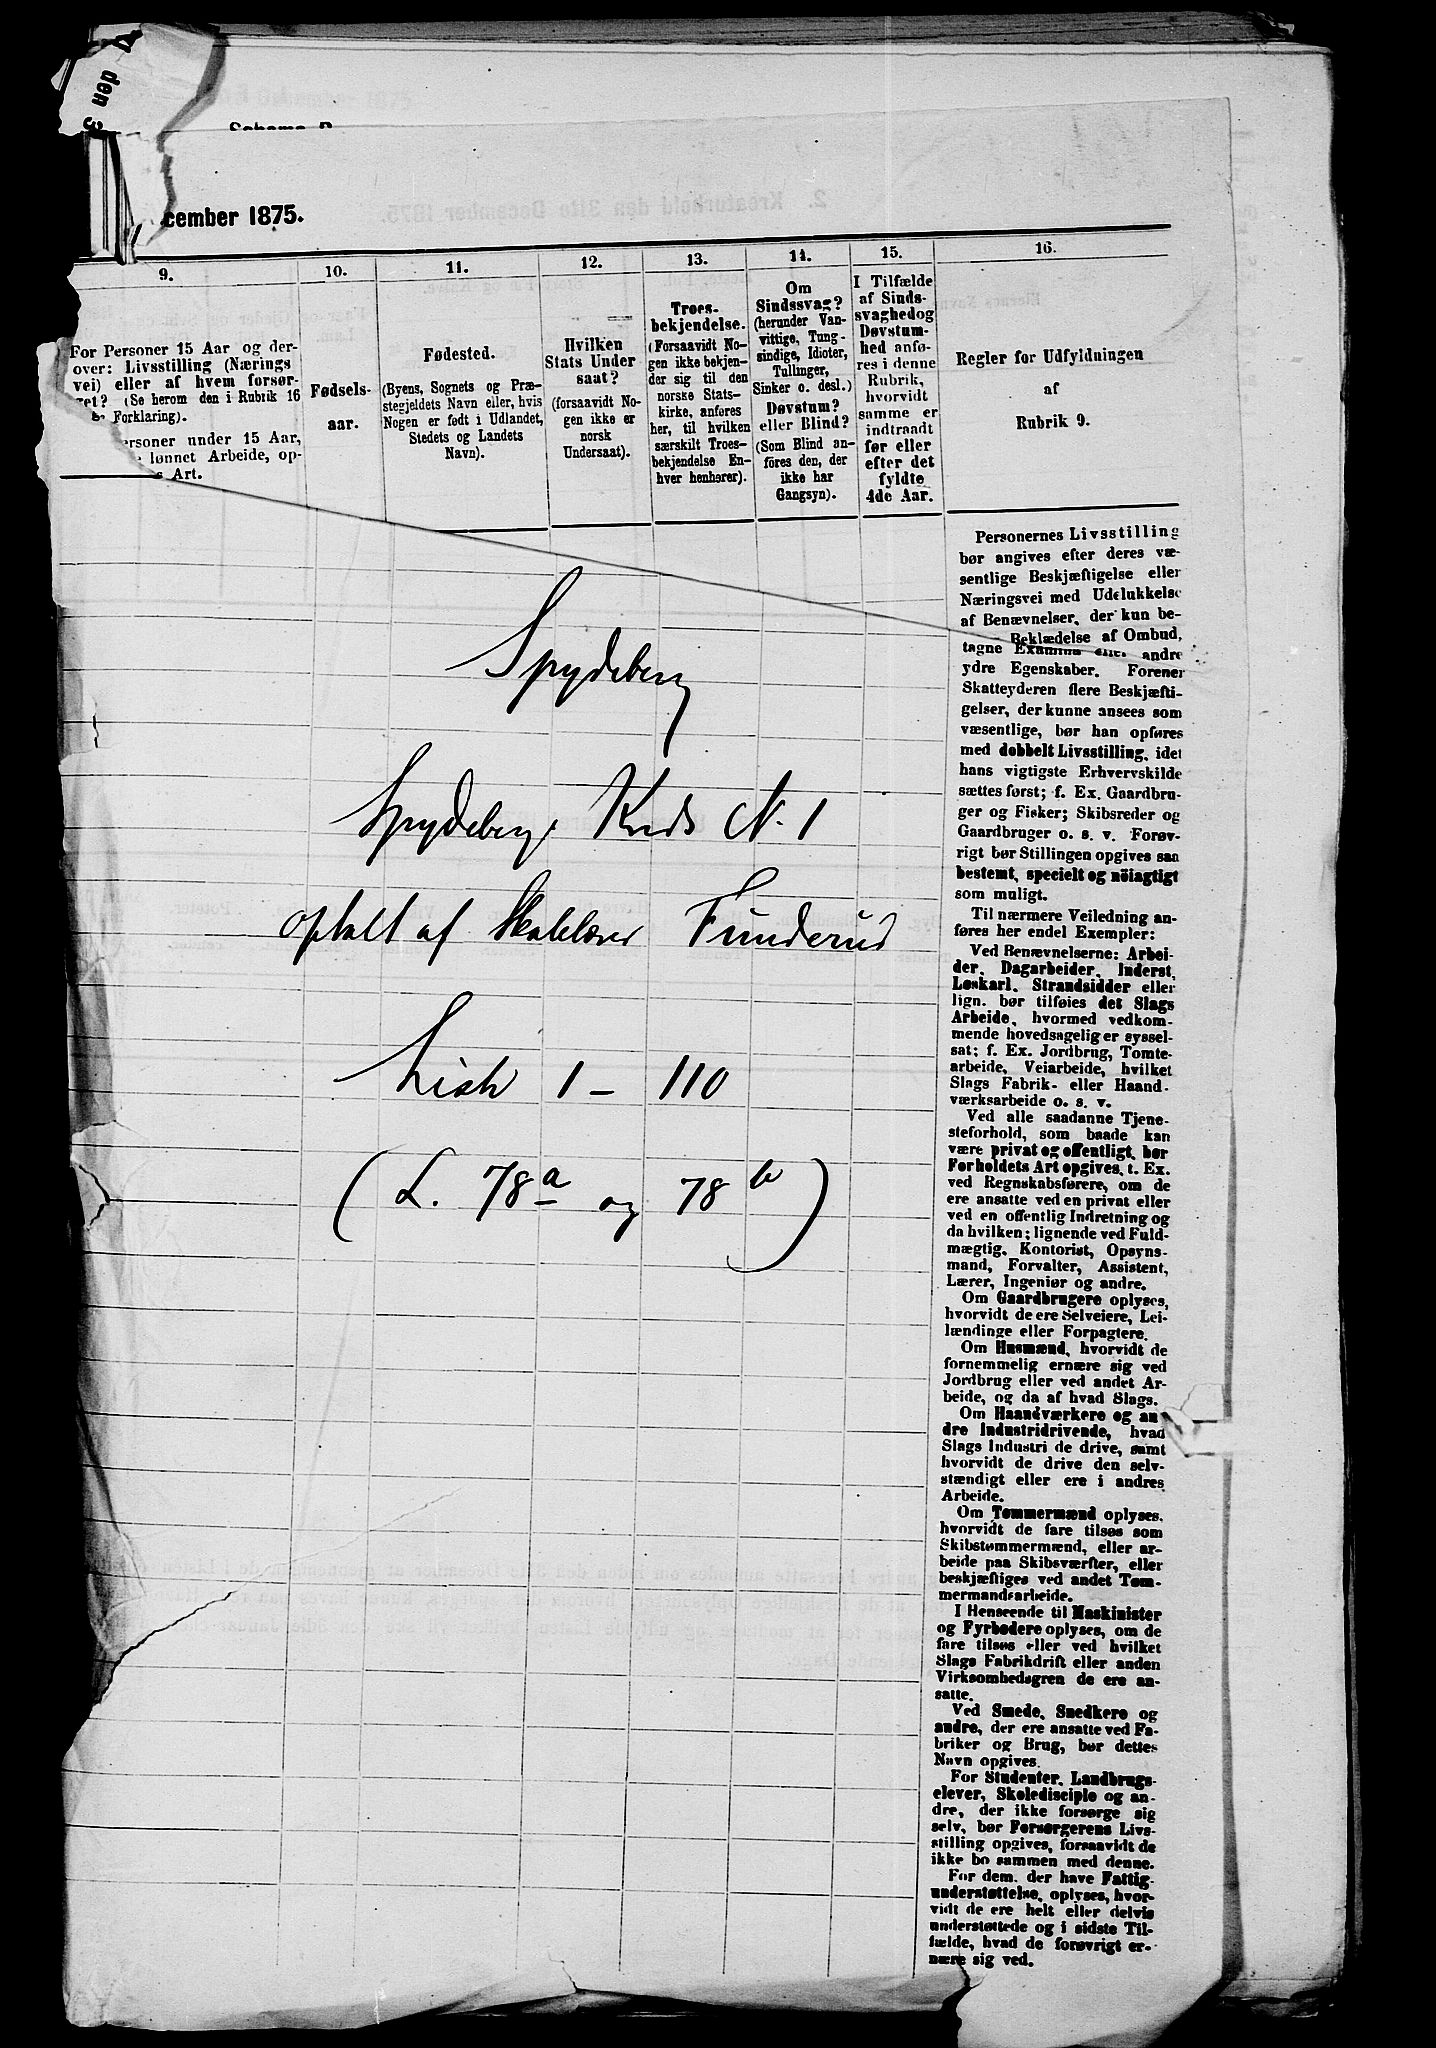 den 3
Schema B
cember 1875.
9.
For Personer 15 Aar og der-
over: Livsstilling (Nærings
vei) eller af hvem forsør-
get? (Se herom den i Rubrik 16
Forklaring).
ersoner under 15 Aar,
lønnet Arbeide, op-
s Art.
10.
Fødsels-
aar.
11.
Fødested.
(Byens, Sognets og Præ-
stegjeldets Navn eller, hvis
Nogen er født i Udlandet,
Stedets og Landets
Navn).
12.
Hvilken
Stats Under
saat?
(forsaavidt No-
gen ikke er
norsk
Undersaat).
13.
Troes-
bekjendelse.
(Forsaavidt No-
gen ikke bekjen-
der sig til den
norske Stats-
kirke, anføres
her, til hvilken
særskilt Troes-
bekjendelse En-
hver henhører).
14.
Om
Sindssvag?
(herunder Van-
vittige, Tung-
sindige, Idioter,
Tullinger,
Sinker o. desl.)
Døvstum?
eller Blind?
(Som Blind an-
føres den, der
ikke har
Gangsyn).
15.
I Tilfælde
af Sinds-
svaghed og
Døvstum-
hed anfø-
res i denne
Rubrik,
hvorvidt
samme er
indtraadt
før eller
efter det
fyldte
4de Aar.
16.
Regler for Udfyldningen
af
Rubrik 9.
Personernes Livsstilling
bør angives efter deres væ-
sentlige Beskjæftigelse eller
Næringsvei med Udelukkelse
af Benævnelser, der kun be-
Beklædelse af Ombud,
tagne Examina eller andre
ydre Egenskaber. Forener
Skatteyderen flere Beskjæfti-
gelser, der kunne ansees som
væsentlige, bør han opføres
med dobbelt Livsstilling, idet
hans vigtigste Erhvervskilde
sættes først; f. Ex. Gaardbru-
ger og Fisker; Skibsreder og
Gaardbruger o. s. v. Forøv-
rigt bør Stillingen opgives saa
bestemt, specielt og nöiagtigt
som muligt.
Til nærmere Veiledning an-
føres her endel Exempler:
Ved Benævnelserne: Arbei-
der, Dagarbeider, Inderst,
Løskarl, Strandsidder eller
lign. bør tilføies det Slags
Arbeide, hvormed vedkom-
mende hovedsagelig er syssel-
sat; f. Ex. Jordbrug, Tomte-
arbeide, Veiarbeide, hvilket
Slags Fabrik- eller Haand-
værksarbeide o. s. v.
Ved alle saadanne Tjene-
steforhold, som baade kan
være privat og offentligt, bør
Forholdets Art opgives, t. Ex.
ved Regnskabsførere, om de
ere ansatte ved en privat eller
ved en offentlig Indretning og
da hvilken; lignende ved Fuld-
mægtig, Kontorist, Opsyns-
mand, Forvalter, Assistent,
Lærer, Ingeniør og andre.
Om Gaardbrugere oplyses,
hvorvidt de ere Selveiere, Lei-
lændinge eller Forpagtere.
Om Husmænd, hvorvidt de
fornemmelig ernære sig ved
Jordbrug eller ved andet Ar-
beide, og da af hvad Slags.
Om Haandværkere og an-
dre Industridrivende, hvad
Slags Industri de drive, samt
hvorvidt de drive den selv-
stændigt eller ere i andres
Arbeide.
Om Tømmermænd oplyses,
hvorvidt de fare tilsøs som
Skibstømmermænd, eller ar-
beide paa Skibsværfter, eller
beskjæftiges ved andet Tøm-
mermandsarbeide.
I Henseende til Maskinister
og Fyrbødere oplyses, om de
fare tilsøs eller ved hvilket
Slags Fabrikdrift eller anden
Virksomhedsgren de ere an-
satte.
Ved Smede, Snedkere og
andre, der ere ansatte ved Fa-
briker og Brug, bør dettes
Navn opgives.
For Studenter, Landbrugs-
elever, Skoledisciple og an-
dre, der ikke forsørge sig
selv, bør Forsørgerens Livs-
stilling opgives, forsaavidt de
ikke bo sammen med denne.
For dem, der have Fattig-
understøttelse, oplyses, hvor-
vidt de ere helt eller delvis
understøttede og i sidste Til-
fælde, hvad de forøvrigt er-
nære sig ved.
Spydeberg
Spydeberg Kreds N. 1
optalt af Skolelærer Funderud
Liste 1 - 110
(L. 78a og 78b)